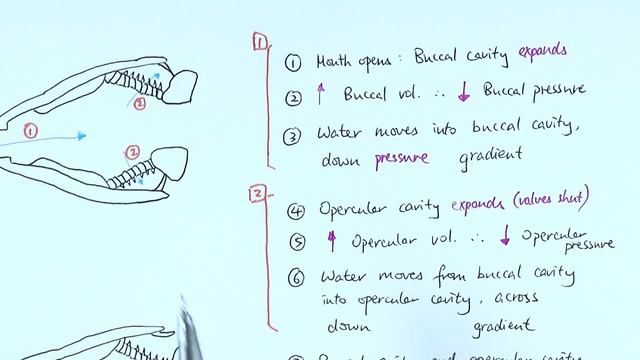 1
① Mouth opens : Buccal cavity expands
② ↑ Buccal vol. ∴ ↓ Buccal pressure
③ Water moves into buccal cavity,
down pressure gradient
2
④ Opercular cavity expands (valves shut)
⑤ ↑ Opercular vol. ∴ ↓ Opercular
pressure
⑥ Water moves from buccal cavity
into opercular cavity, across
down gradient
②
①
②